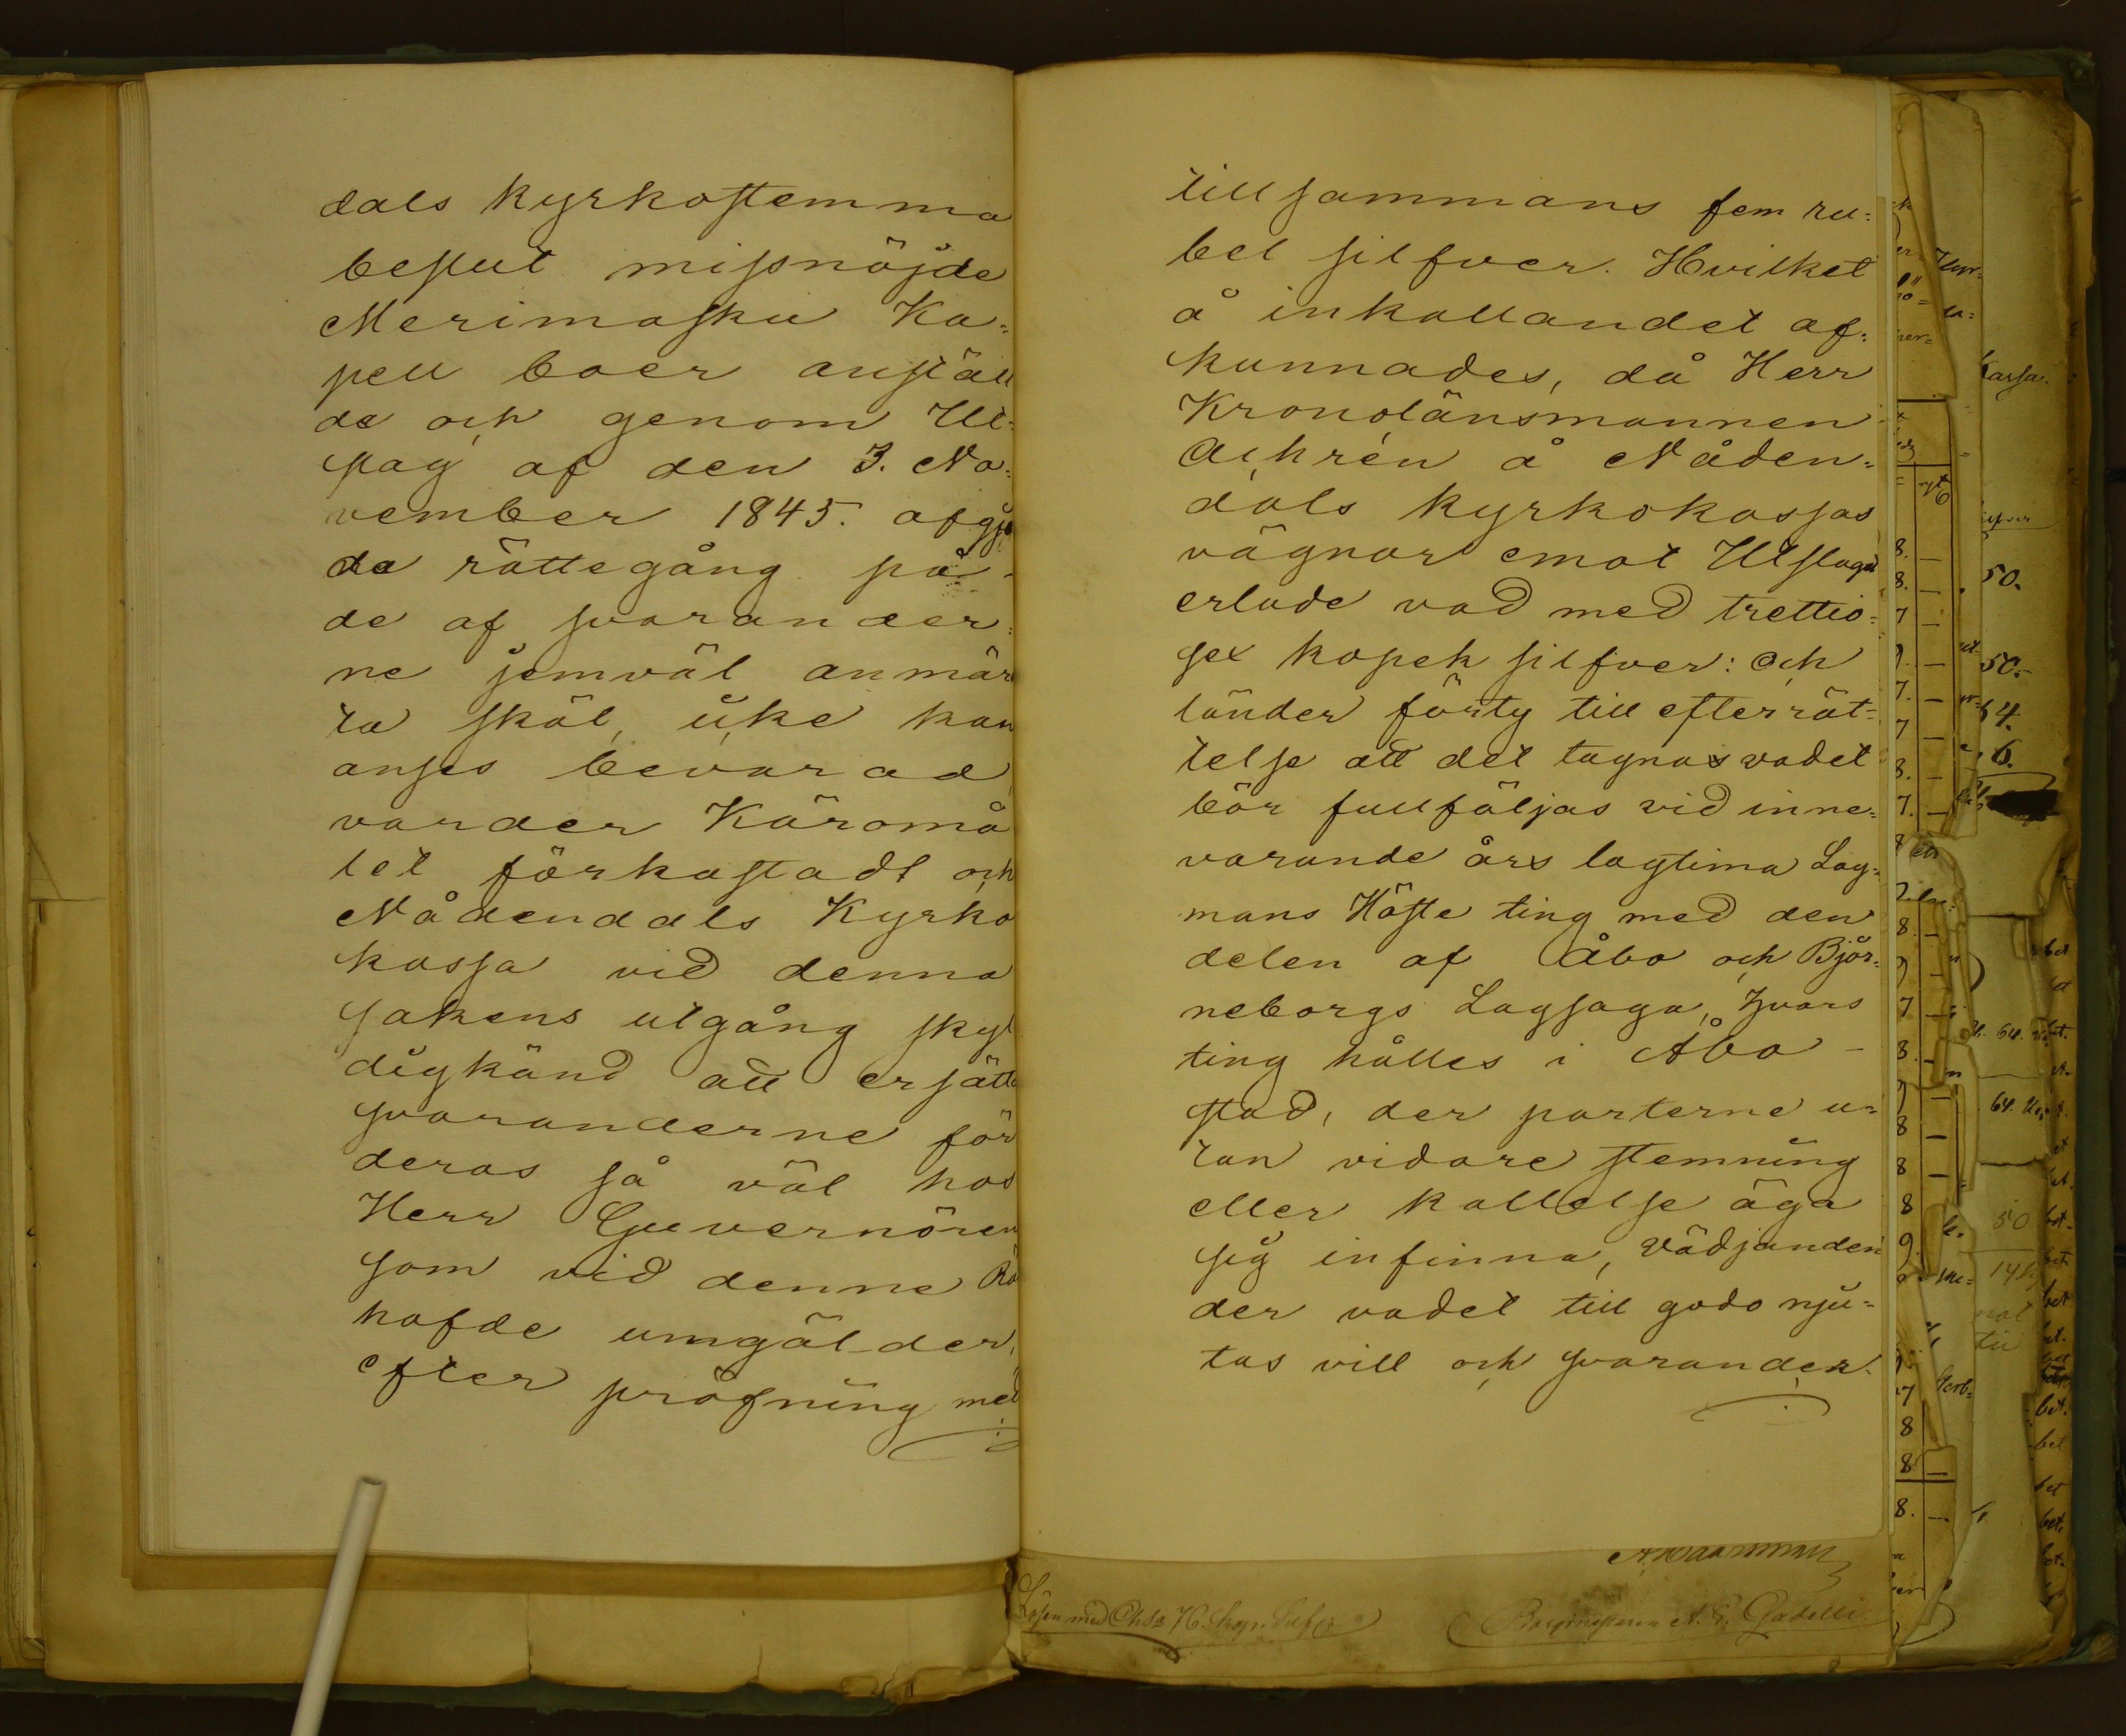 dals kyrkostemma
beslut missnöjde
Merimasku Ka=
pell boer anstäl
de och genom Ut=
slag af den 3. No=
vember 1845. afgjo
da rättegång på-
de af svarander=
ne jemväl anmär
ta skäl, icke kan
anses bevarad,
varder Käromå
let förkastadt och
Nådendals Kyrko
kassa vid denna
sakens utgång skyl
digkänd att ersätta
svaranderne för
deras så väl hos
Herr Guvernören
som vid denne Rä
hafde umgälder,
efter pröfning med
tillsammans fem ru=
bel silfver. Hvilket
å inkallandet af=
kunnades, då Herr
Kronolänsmannen
Achrén å Nåden=
dals kyrkokassas
vägnar emot Utslaget
erlade vad med trettio=
sex kopek silfver: och
länder förty till efterrät=
telse att det tagna vadet
bör fullföljas vid inne=
varande års lagtima Lag=
mans Höste ting med den
delen af Åbo och Björ=
neborgs Lagsaga, hvars
ting hålles i Åbo -
stad, der parterne u=
tan vidare stemning
eller kallelse äga
sig infinna, Vädjanden
der vadet till godo nju=
tas vill och svarander.
Lösen med Chda 76. kop. Silf.
A. G. Gadelli